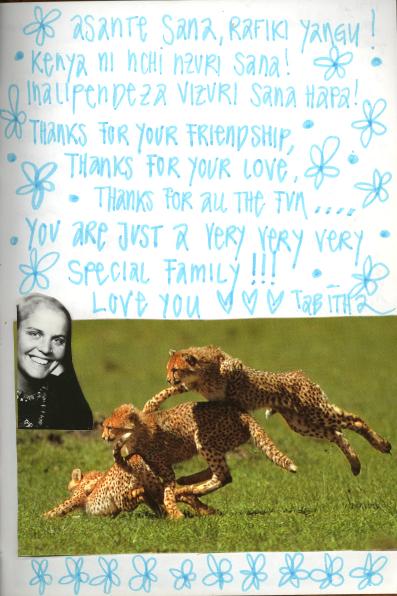 ASANTE SANA, RAFIKI YANGU!
KENYA NI NCHI NZURI SANA!
INALIPENDEZA VIZURI SANA HAPA!
THANKS FOR YOUR FRIENDSHIP,
THANKS FOR YOUR LOVE,
THANKS FOR ALL THE FUN ....
YOU ARE JUST A VERY VERY VERY
SPECIAL FAMILY!!!
LOVE YOU ♡ ♡ ♡ TABITHA